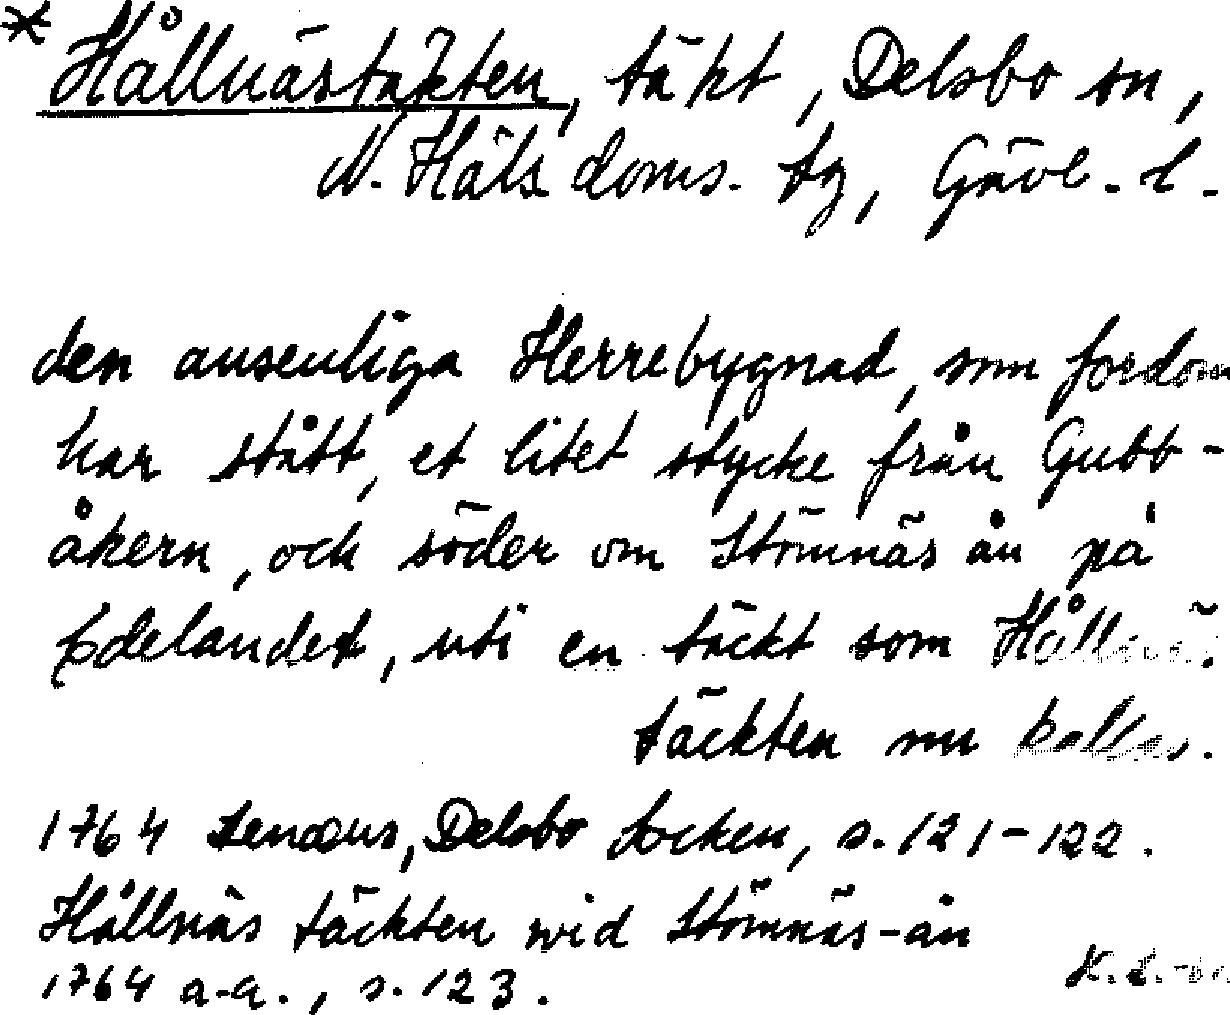 * Hållnästäkten, täkt, Delsbo sn,
N. Häls. doms. tg, Gävl. l.
den ansenliga Herrebygnad, som fordom
har stått, et litet stycke från Gubb-
åkern, och söder om Stömnäs ån på
Edelandet, uti en täckt som Hållnäs
täckten nu kallas.
1764 Lenæus, Delsbo Socken, s. 121-122.
Hållnäs täckten wid Stömnäs-ån
1764 a.a., s. 123.